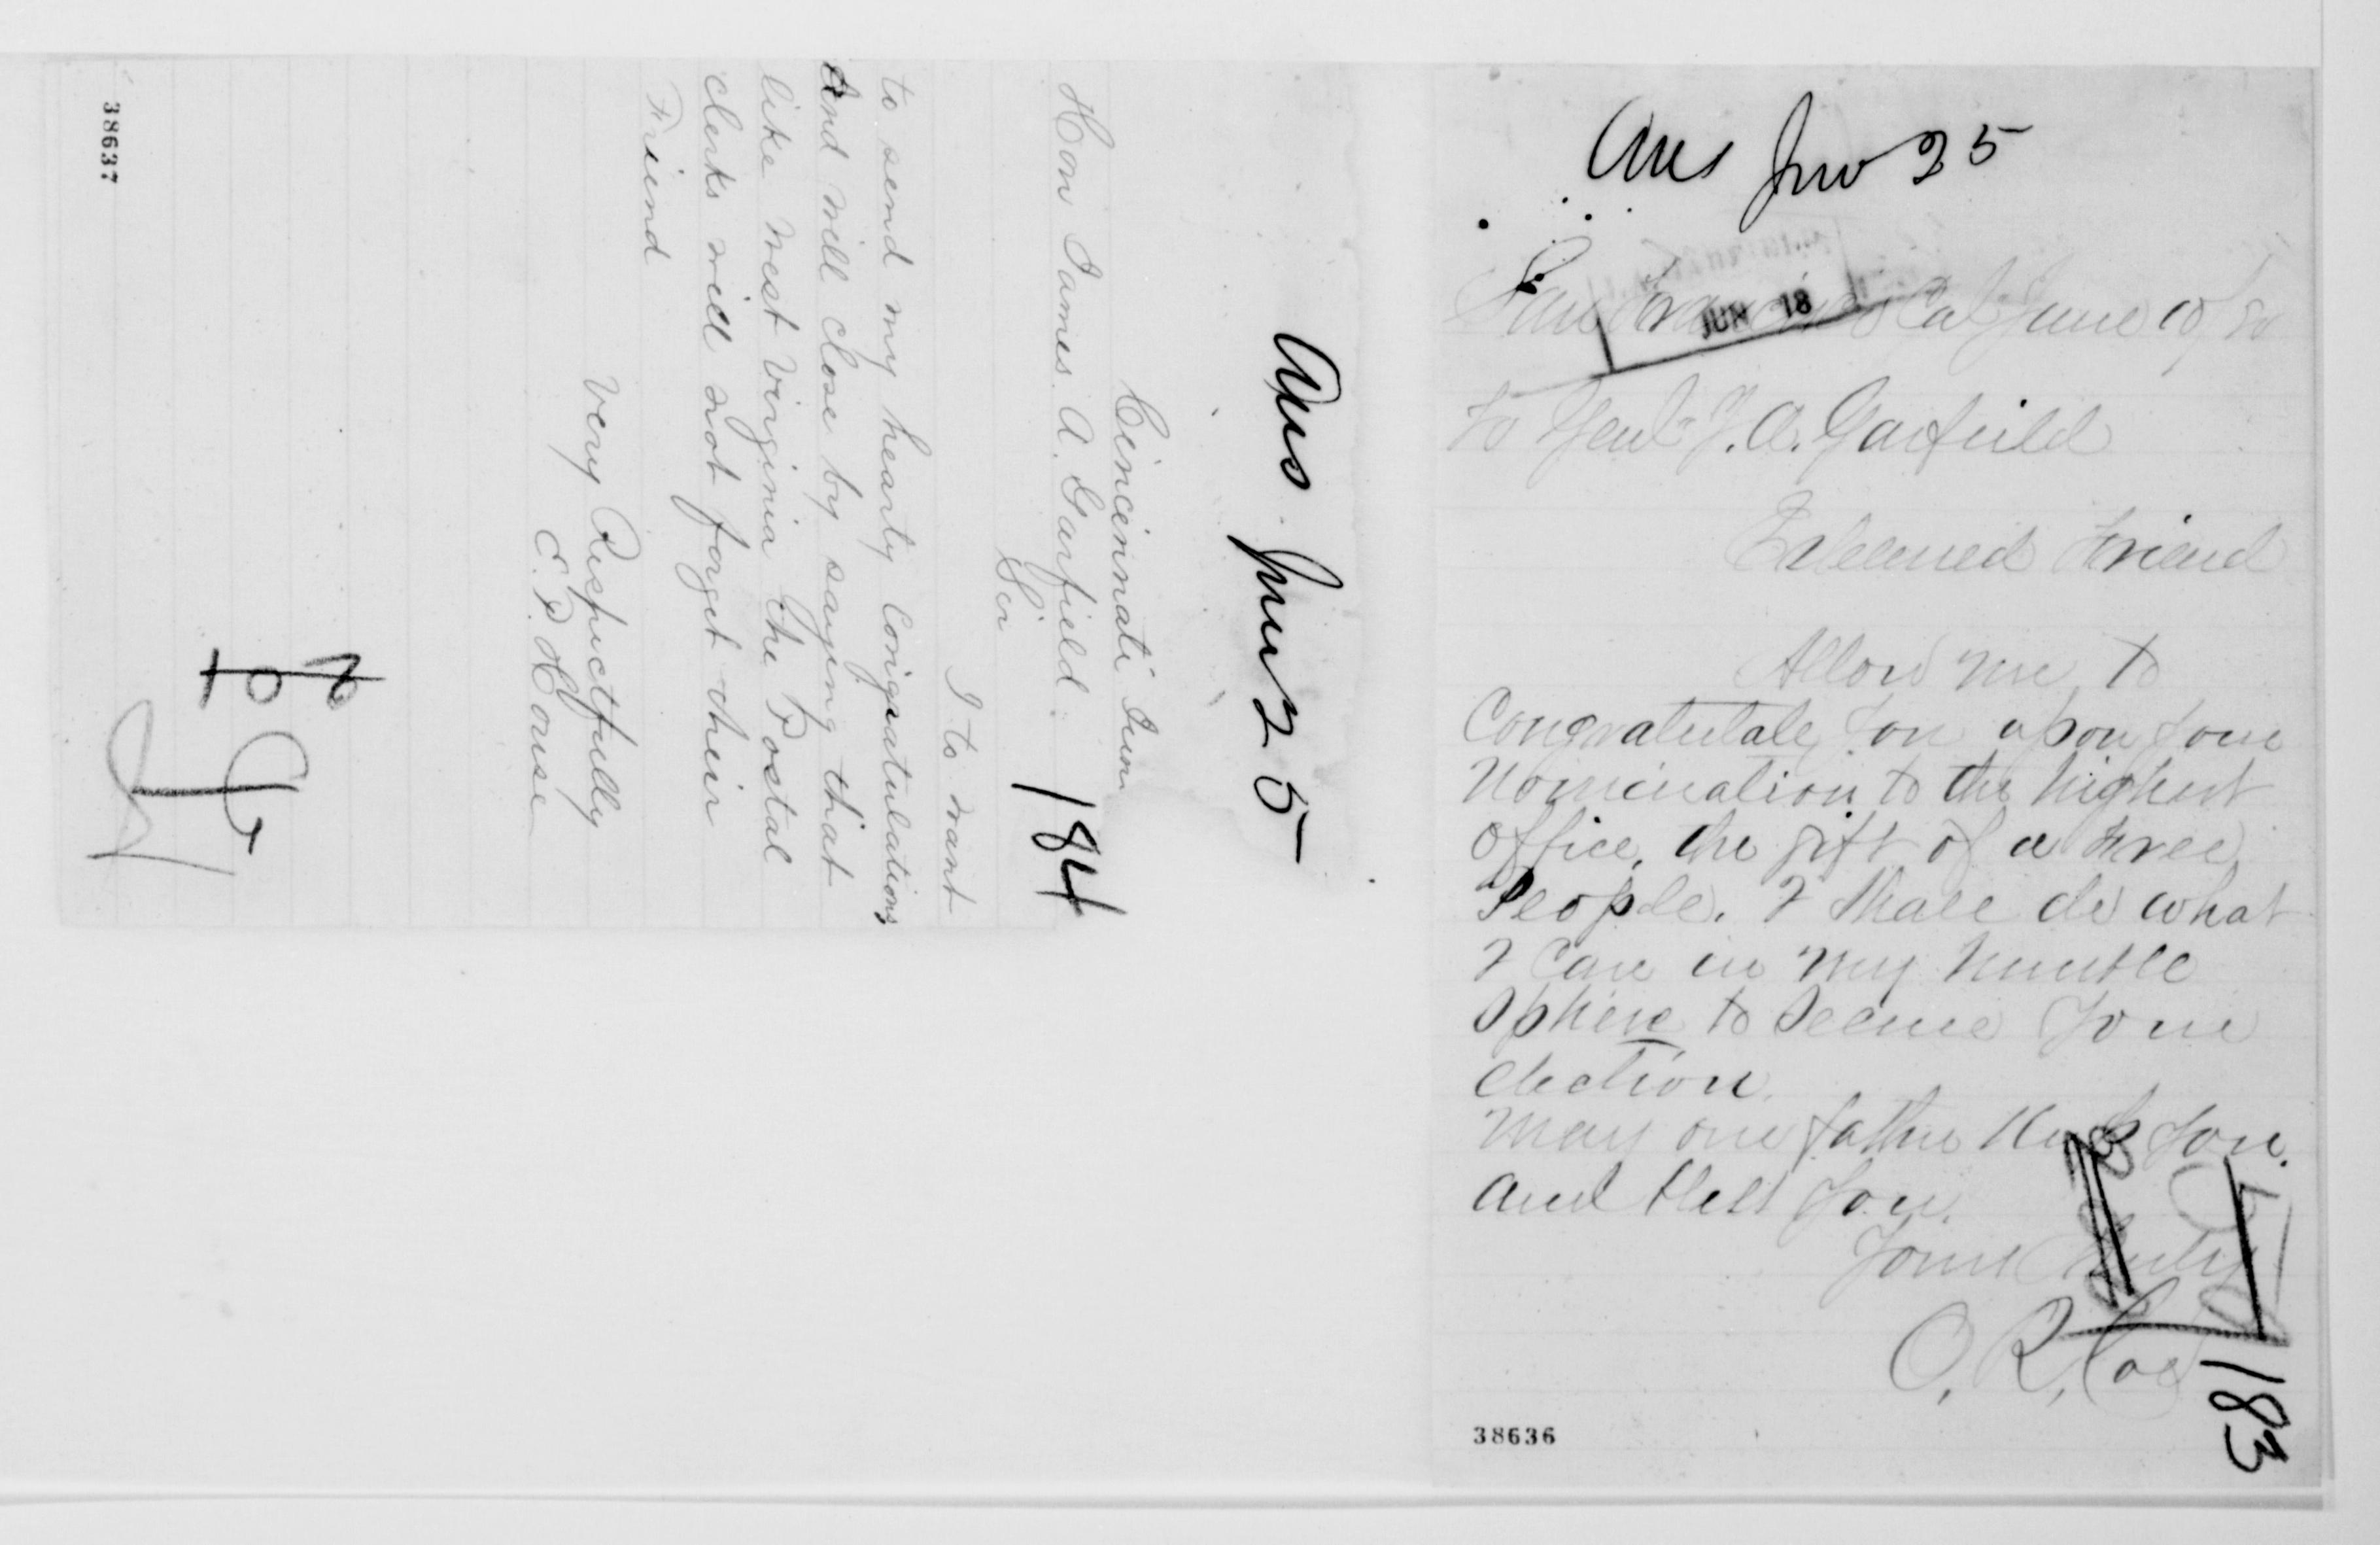 Ans Jun 25
Cincinnati June
Hon James. A. Garfield.
Sir
184
I to want
to send my hearty Congratulations
And will close by saying that
like West Virginia the Postal
clerks will not forget their
Friend
Very Respectfully
E. P. House
38637
Ans Jun 25
San Francisco Cal June 10/80
JUN 18
To Genl J. A. Garfield
Esteemed Friend
Allow me to
Congratulate you upon your
Nomination to the highest
office, the gift of a free
People. I shall do what
I can in my humble
Sphere to secure your
election.
May our father keep you.
and bless you.
Yours truly
O. R. Coe
183
38636